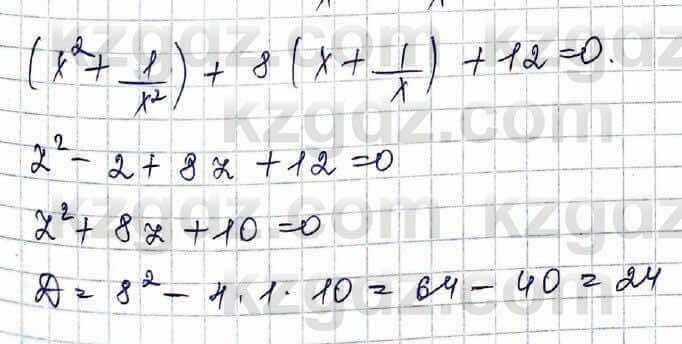 (x² + 1/x²) + 8 (x + 1/x) + 12 = 0.
z² - 2 + 8z + 12 = 0
z² + 8z + 10 = 0
D = 8² - 4 · 1 · 10 = 64 - 40 = 24
kzgdz.com